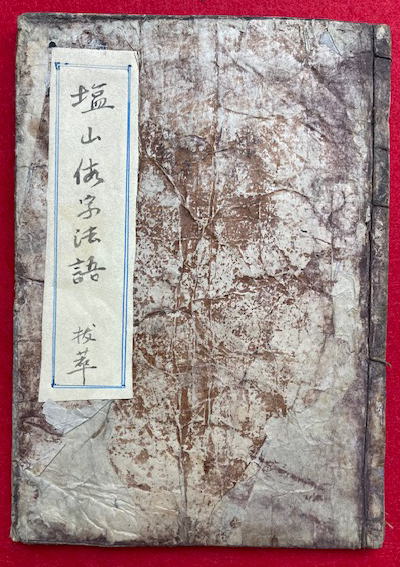 塩山仮字法語 抜萃